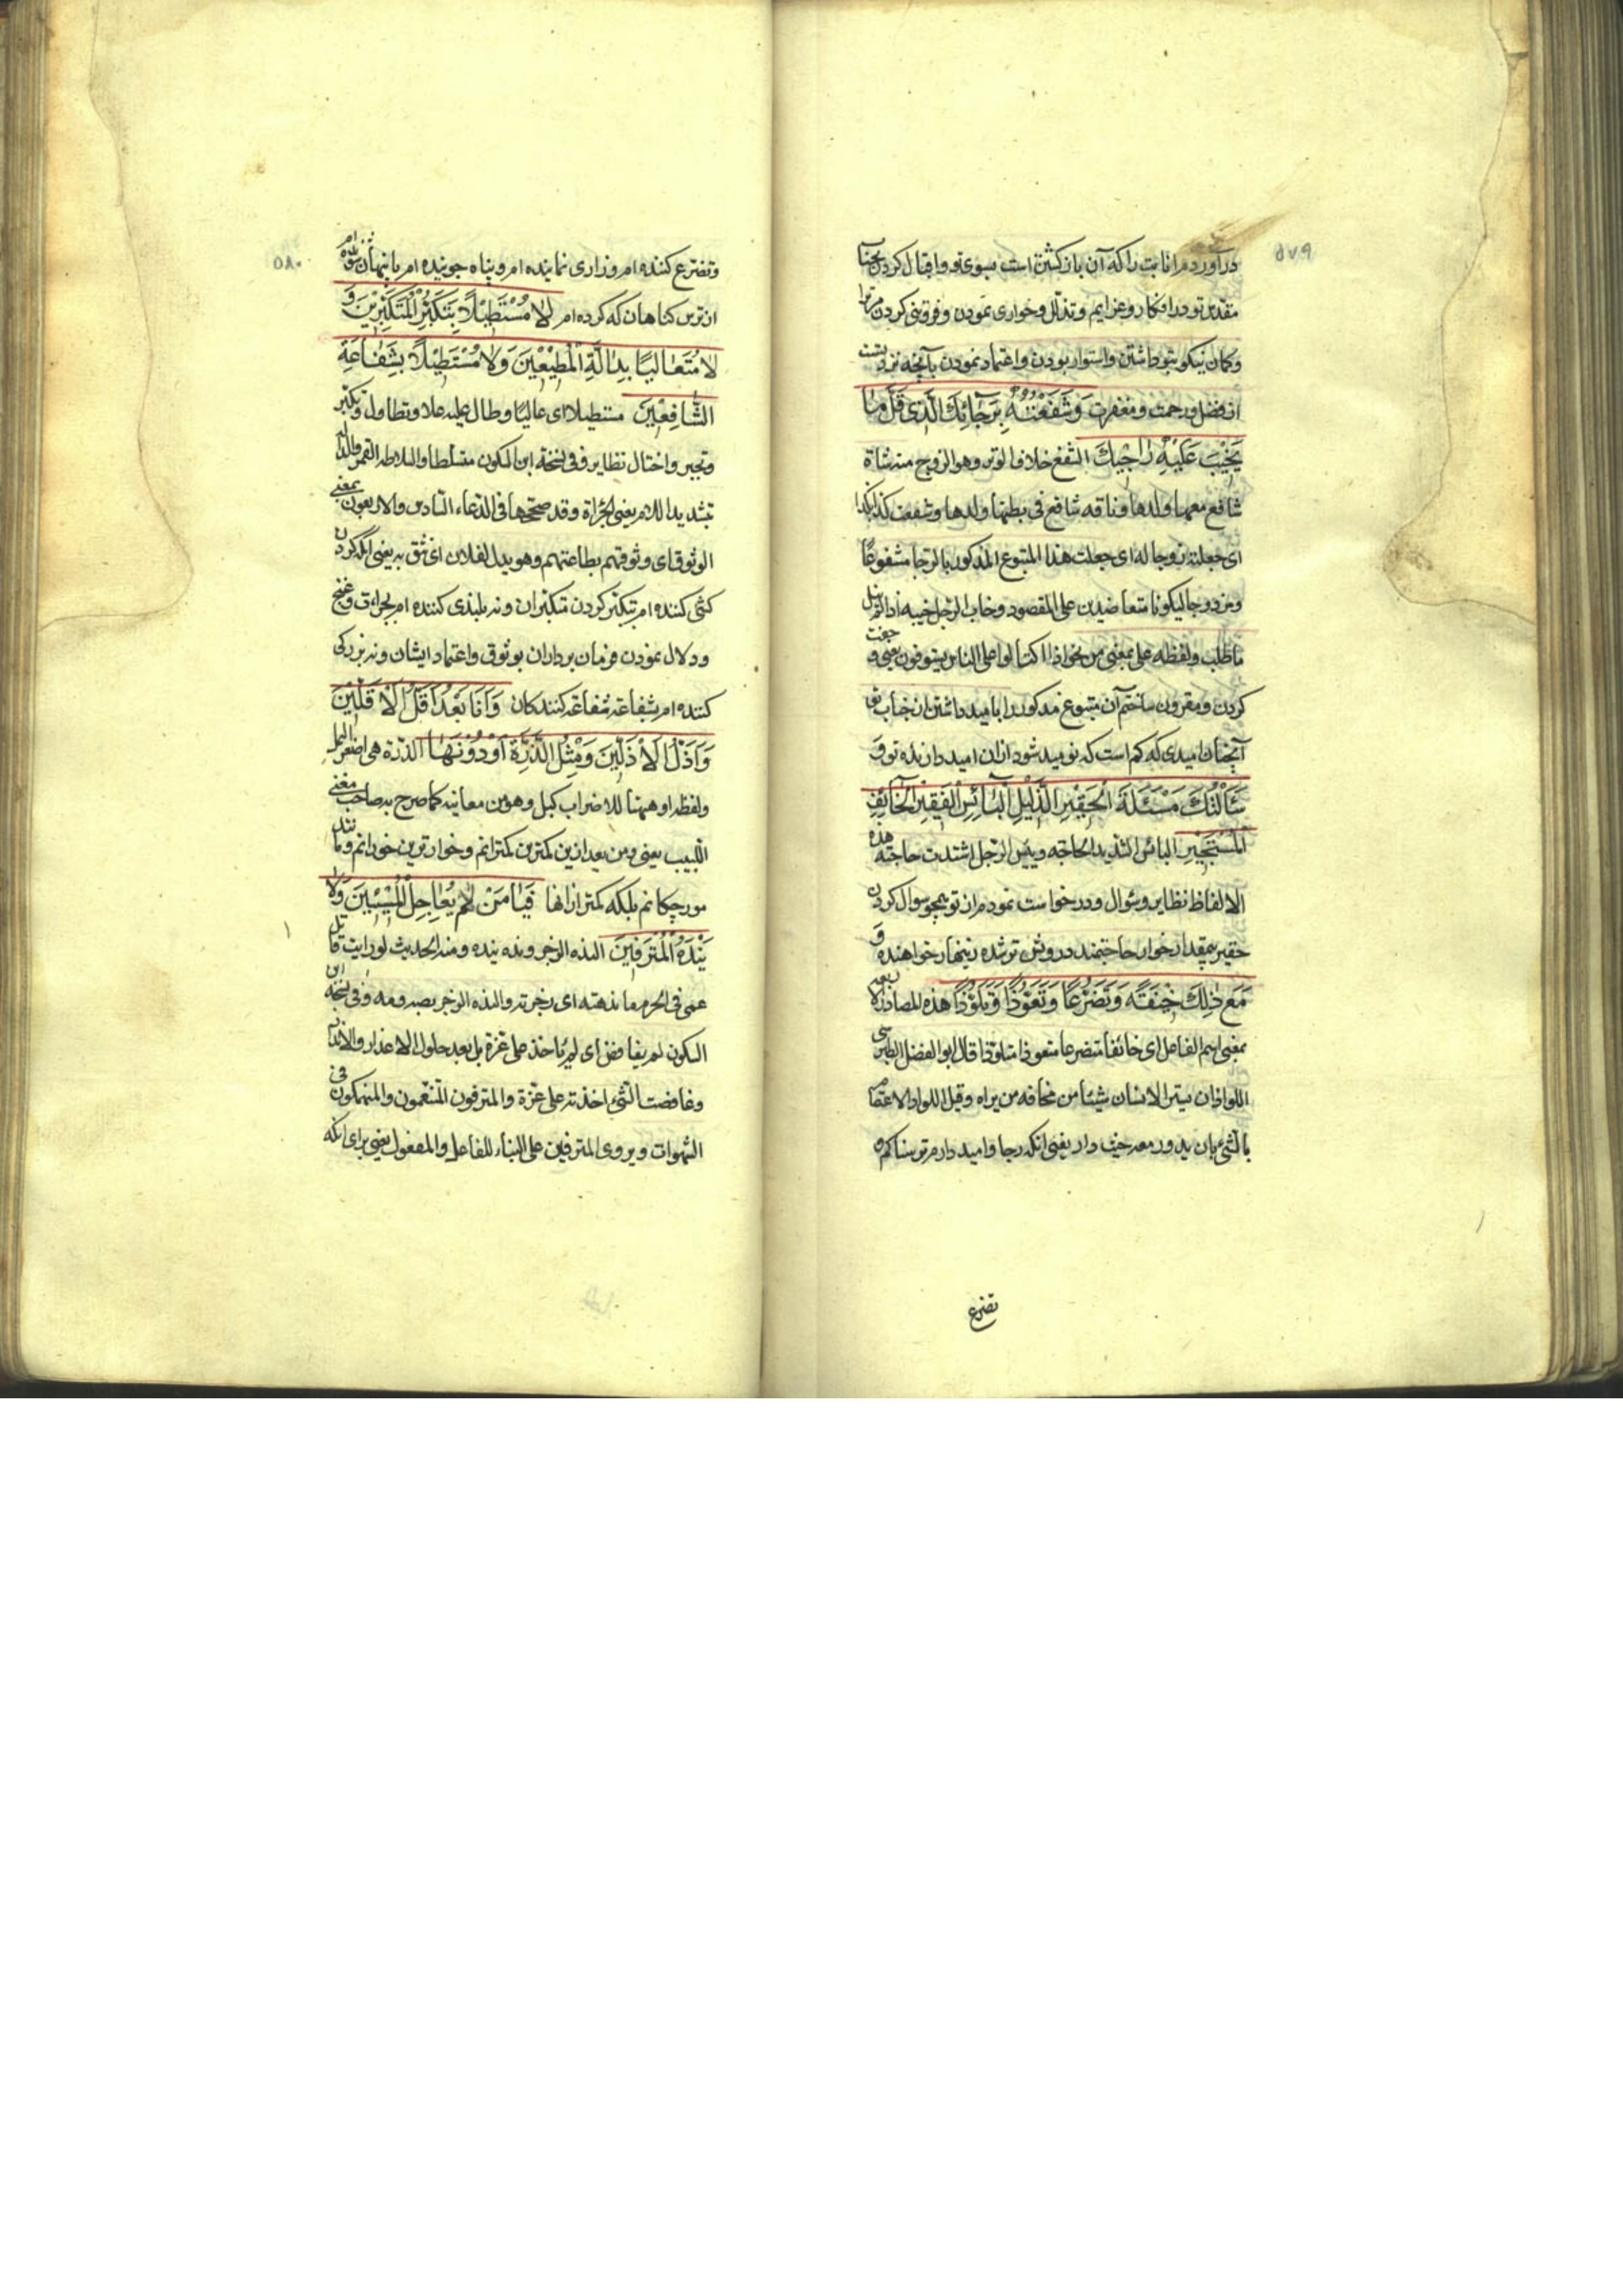 ۵۷۹
درآورده‌ام انابت را که آن بازگشتن است بسوی تو و اقبال کردن بجناب
مقدس تو در افکار و عزایم و تذلل و خواری نمودن و فروتنی کردن مر ترا
و گمان نیکو بتو داشتن و استوار بودن و اعتماد نمودن بآنچه نزد تست
از فضل و رحمت و مغفرت وَشَفَعْتُهُ بِرَجَائِكَ الَّذِی قَلَّ مَا
يَخِيْبُ عَلَيْهِ رَاجِيْكَ الشفع خلاف الوتر وهو الزوج منه شاة
شافع معها ولدها وناقه شافع فی بطنها ولدها وشفعت کذا بکذا
ای جعلته زوجا له ای جعلت هذا المتبوع المذکور بالرجا مشفوعًا
ومزدوجا لیکونا متعاضدین علی المقصود وخاب الرجل خیبه اذا لم ینل
ما طلب ولفظه علی بمعنی من نحو اذا اکتالوا علی الناس یستوفون یعنی و جفت
کردن و مقرون ساختم آن متبوع مذکور را بامید داشتن از جناب تو
آنچنان امیدی که کم است که نومید شود از ان امید دارنده تو وَ
سَأَلْتُكَ مَسْئَلَةَ الْحَقِيْرِ الذَّلِيْلِ الْبَائِسِ الْفَقِيْرِ الْخَائِفِ
الْمُسْتَجِيْرِ البائس الشدید الحاجه وبئس الرجل اشتدت حاجته هذه
الالفاظ نظایر وسؤال و درخواست نمودم از تو همچو سوال کردن
حقیر بیمقدار خوار حاجتمند درویش ترسنده زینهار خواهنده وَ
مَعَ ذٰلِكَ خِيْفَةً وَتَضَرُّعًا وَتَعَوُّذًا وَتَلَوُّذًا هذه المصادر الاربعه
بمعنی اسم الفاعل ای خائفا متضرعا متعوذا متلوذا قال ابو الفضل الطبرسی
اللواذ ان یستر الانسان بشیئ من مخافه من یراه وقیل اللواذ الاعتصام
بالشئ بان یدور معه حیث دار یعنی آنکه رجا و امید دارم ترسناکم و
تضرع
۵۸۰
و تضرع کننده‌ام و زاری نماینده‌ام و پناه جوینده‌ام با پنهان شونده‌ام
از ترس گناهان که کرده‌ام لَا مُسْتَطِيْلًا بِتَكَبُّرِ الْمُتَكَبِّرِيْنَ وَ
لَا مُتَعَالِيًا بِدَالَّةِ الْمُطِيْعِيْنَ وَلَا مُسْتَطِيْلًا بِشَفَاعَةِ
الشَّافِعِيْنَ مستطیلا ای عالیًا وطال علیه علا وتطاول وتکبر
وتجبر واختال نظایر وفی نسخة ابن السکون متسلطا والسلاطه القهر والدالة
بتشدید اللام یعنی الجراة وقد صححها فی الدعاء السادس والاربعون بمعنی
الوثوق ای وثوقهم بطاعتهم وهو یدل لفلان ای یثق به یعنی آنکه گردن
کشی کننده‌ام بتکبر کردن متکبران و نه بلندی کننده‌ام بجراءت و غنج
و دلال نمودن فرمان برداران بوثوق و اعتماد ایشان و نه بزرگی
کننده‌ام بشفاعة شفاعة کنندگان وَأَنَا بَعْدُ أَقَلُّ الْأَقَلِّيْنَ
وَأَذَلُّ الْأَذَلِّيْنَ وَمِثْلُ الذَّرَّةِ أَوْ دُوْنَهَا الذرة هی اصغر النمل
ولفظه او ههنا للاضراب کبل وهو من معانیه کما صرح به صاحب مغنی
اللبیب یعنی و من بعد ازین کمترین کمترانم و خوارترین خورانم و مانند
مورچگانم بلکه کمتر ازانها فَيَا مَنْ لَمْ يُعَاجِلِ الْمُسِيْئِيْنَ وَلَا
يَنْدَهُ الْمُتْرَفِيْنَ النده الزجر ونده ینده ومنه الحدیث لو رایت قاتل
عمی فی الحرم ما ندهته ای زجرته والنده الزجر بصه ومه وفی نسخة ابن
السکون لم یغافض ای لم یاخذ علی غرة بل بعد حلول الاعذار والانذار
وغافضت الشئ اخذته علی غرة والمترفون المتنعمون والمنهمکون فی
الشهوات ویروی المترفین علی البناء للفاعل والمفعول یعنی برای آنکه